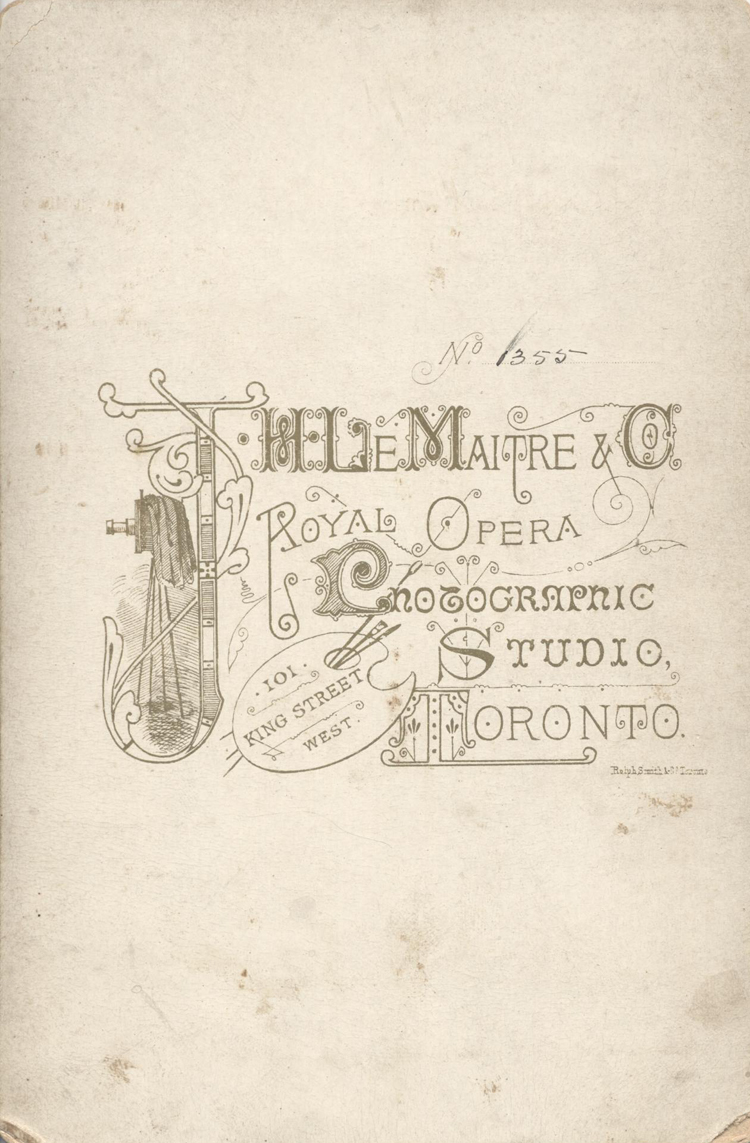 No. 1355
J.H. LeMaitre & Co.
Royal Opera
Photographic
Studio,
101
King Street
West.
Toronto.
Ralph, Smith & Co. Toronto